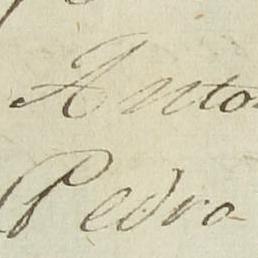 Anto
Pedro